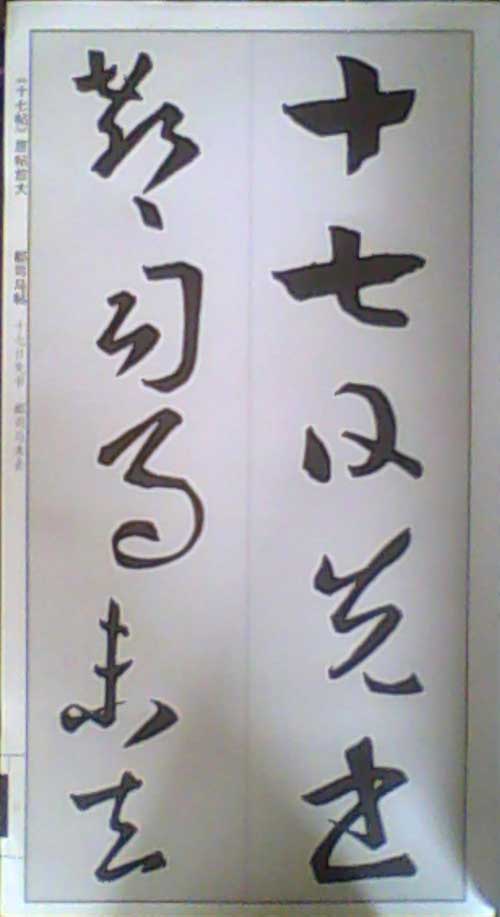 十七日先书
郗司马未去
《十七帖》原帖放大 郗司马帖 十七日先书 郗司马未去